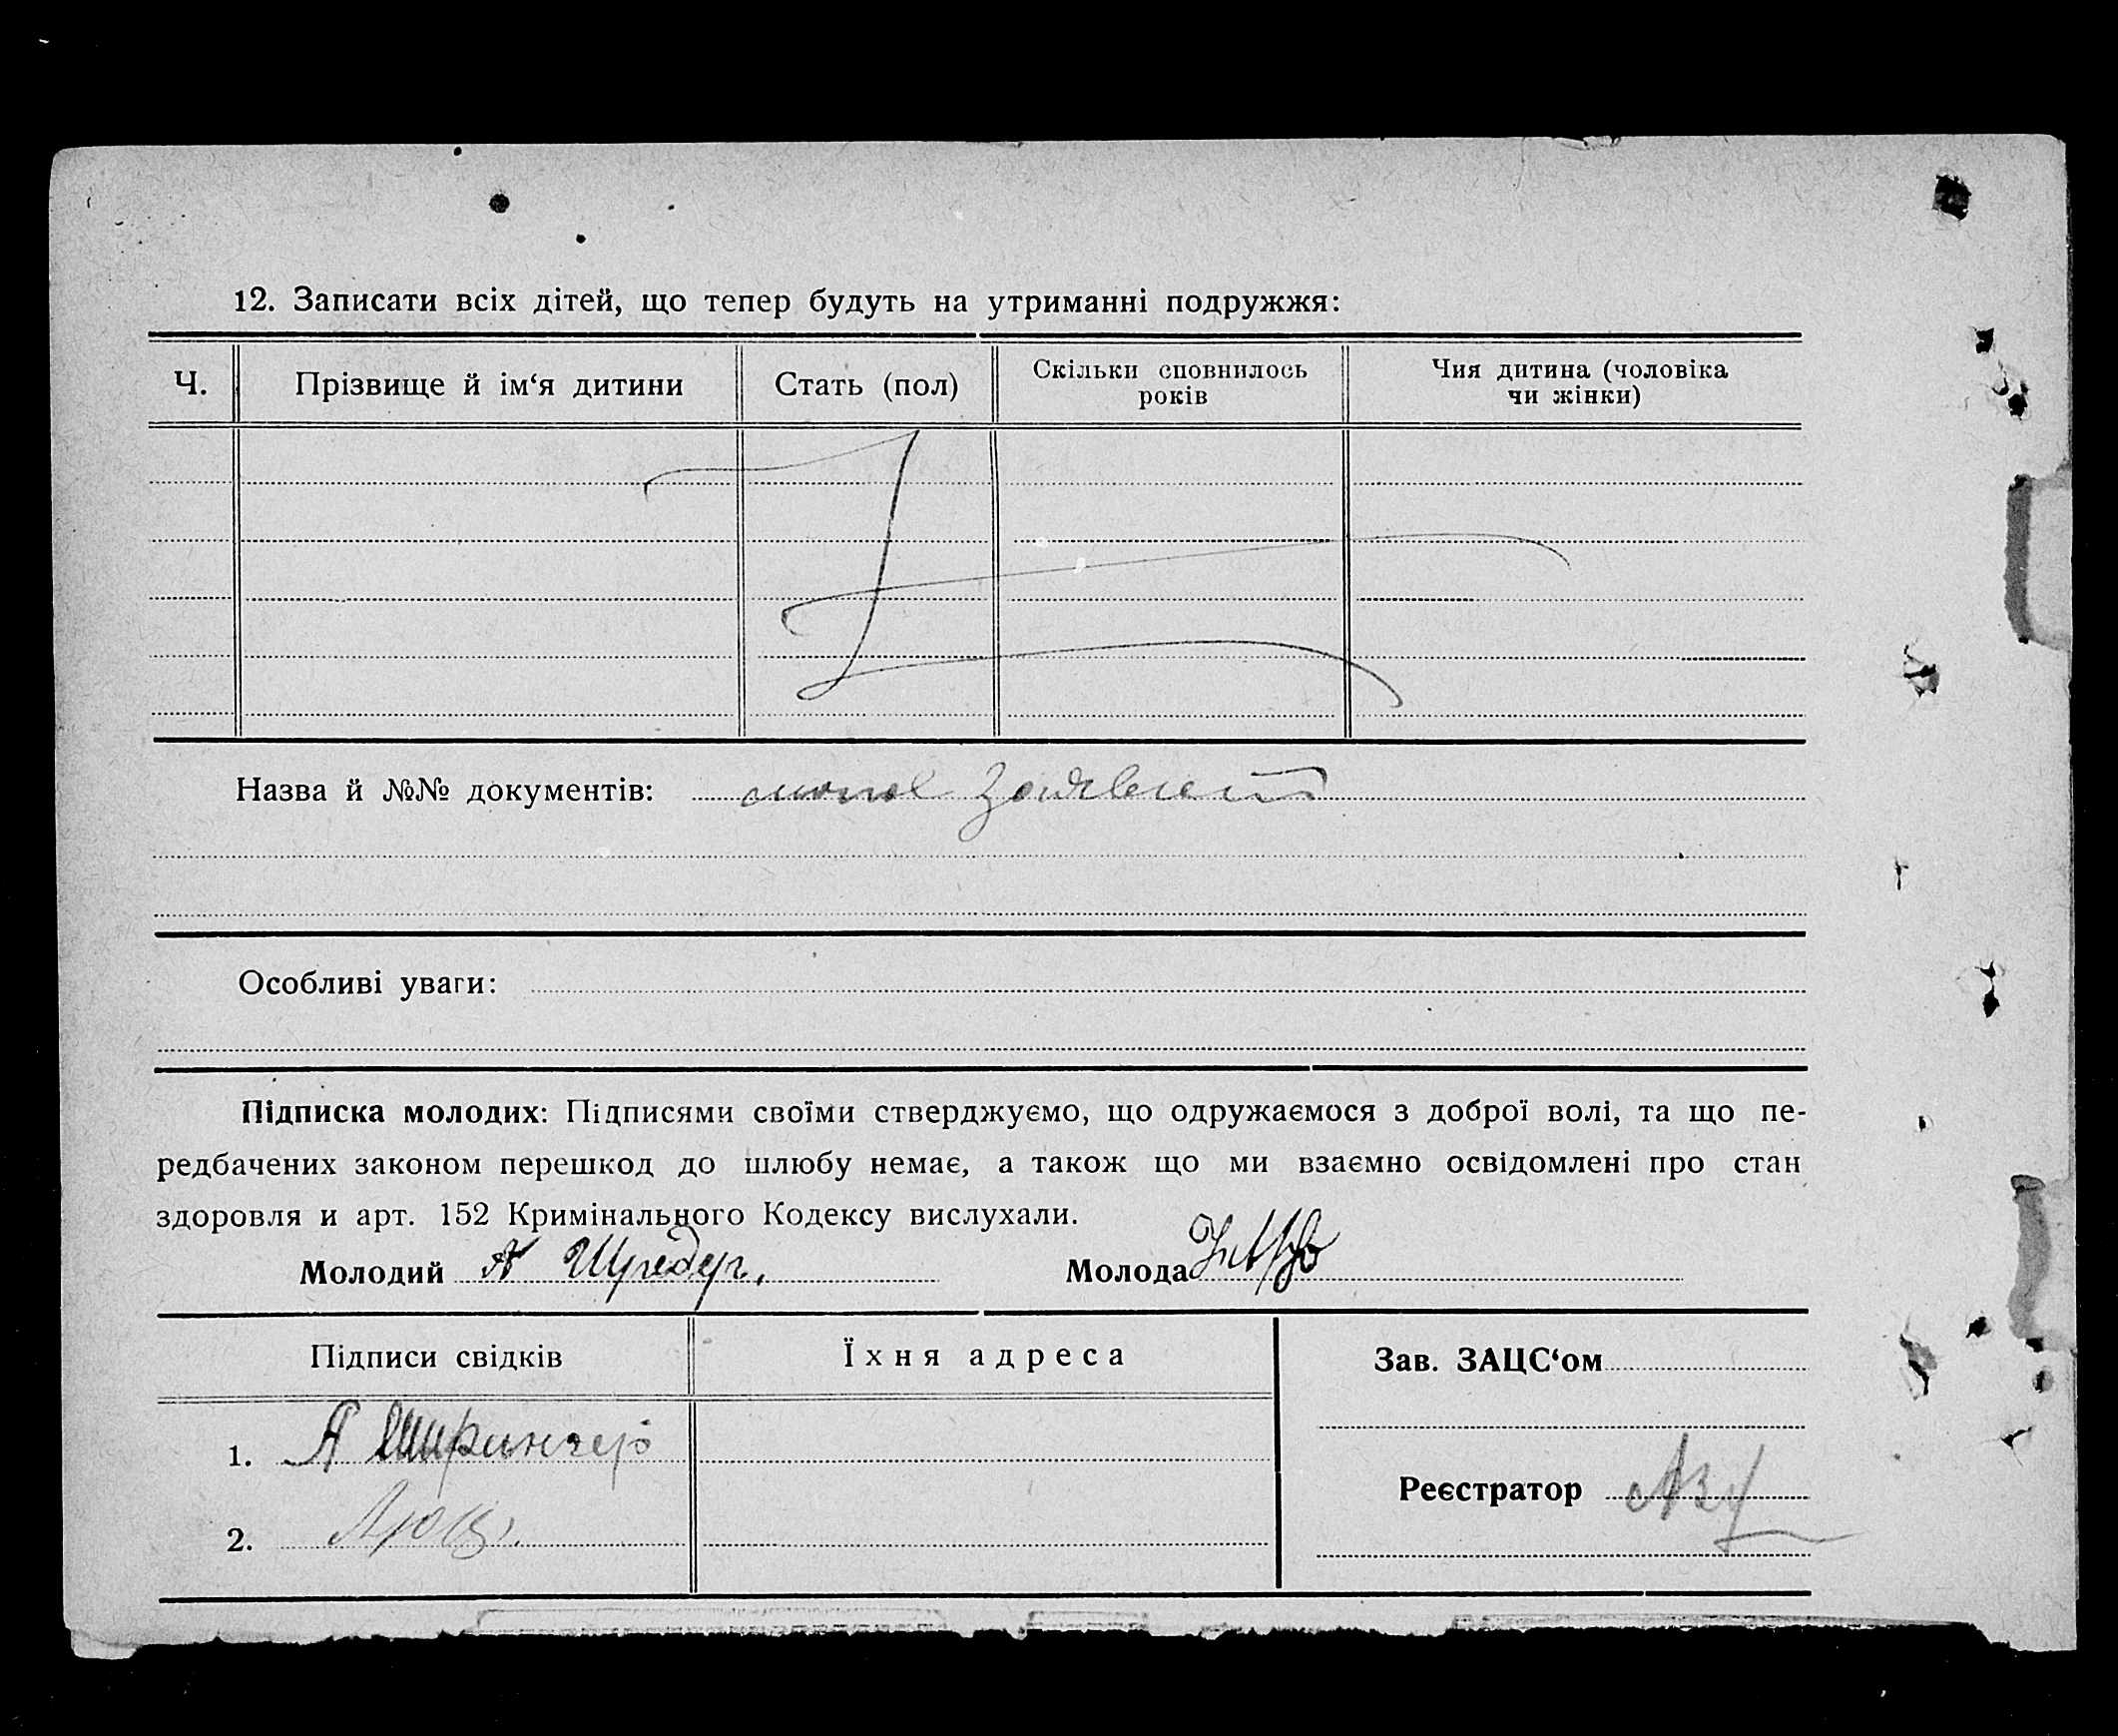 12. Записати всіх дітей, що тепер будуть на утриманні подружжя:
Ч. Прізвище й ім‘я дитини Стать (пол) Скільки сповнилось років Чия дитина (чоловіка чи жінки)
Назва й №№ документів:
Особливі уваги:
Підписка молодих: Підписями своїми стверджуємо, що одружаємося з доброї волі, та що пе-
редбачених законом перешкод до шлюбу немає, а також що ми взаємно освідомлені про стан
здоровля и арт. 152 Кримінального Кодексу вислухали.
Молодий А Шредер. Молода
Підписи свідків Їхня адреса Зав. ЗАЦС‘ом
1. А
Реєстратор
2.